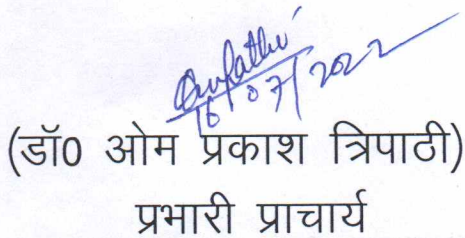 16/07/2022
(डॉ0 ओम प्रकाश त्रिपाठी)
प्रभारी प्राचार्य